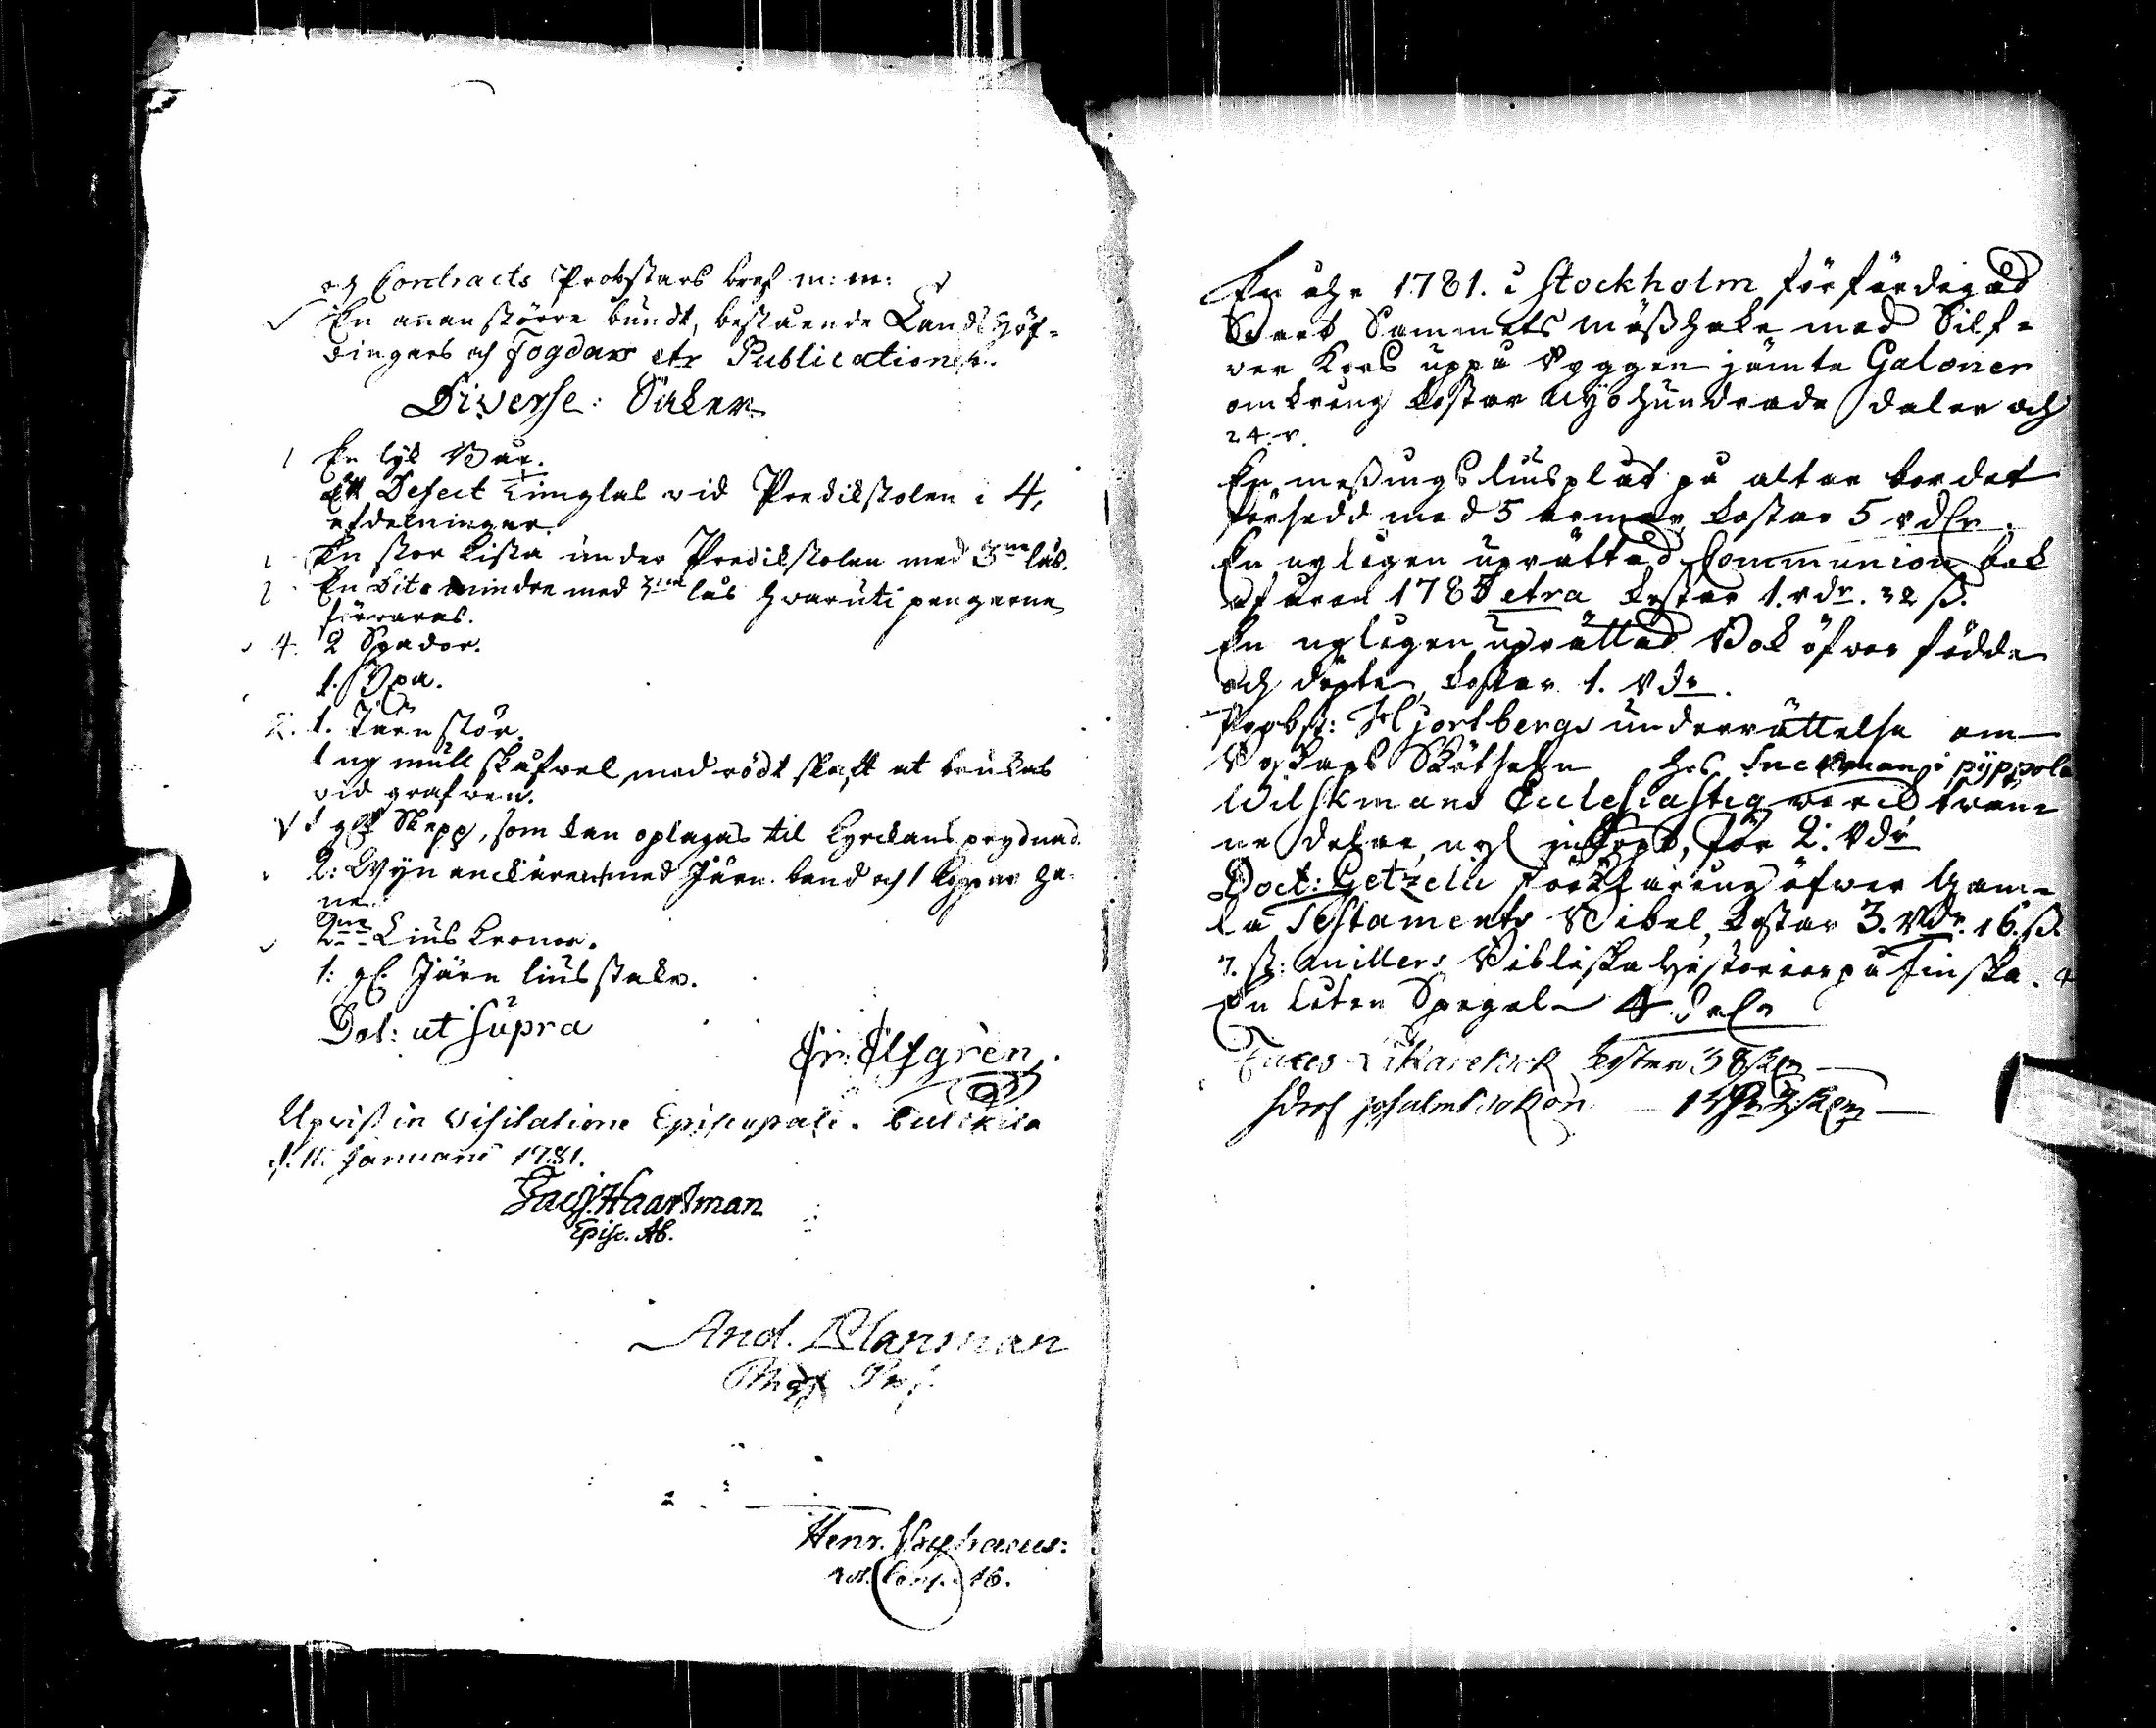 och Contracts Probstars bref m: m:
En annan större bundt, bestående Landshöf=
dingars och Fogdars etc Publicationer.
Diverse: Saker
1 En lyk Bår.
Ett Defect timglas vid Predikstolen i 4,
afdelningar
1 En stor kista under Predikstolen med 3ne lås.
1 En Dito mindre med 3ne lås hvaruti pengarne
förvaras.
4. 2 Spador.
1.
2. 1. Järn stör.
1 ny mull skufvel, med rödt skaft at brukas
vid grafven.
1 gl Skepp, som kan oplagas til Kyrckans prydnad.
2: Wyn anckare med Järn band och 1 koppar ha=
ne.
2ne Lius Kronor.
1: gl. Järn liusstake.
Dat: ut supra
Er: Elfgrèn.
Upvist in Visitatione Episcopali
d. 11. Januarii 1781.
Jac. Haartman
Episc. Ab.
And. Planman
Henr.
not. Cons. Ab.
En åhr 1781. i Stockholm förfärdigad
Svart Sammets mässhake med Silf=
ver Kors uppå Ryggen jämte Galoner
omkring kostar hundrade daler och
24. r.
En messings liusplåt på altar bordet
försedd med 5 armar kostar 5 rdlr.
En nyligen uprättad Communion bok
af åren 1785 etra kostar 1. rdr. 32 sz.
En nyligen uprättad Bok öfver födde
och döpte, kostar 1. Rdr.
Probst: Hjortbergs underrättelse om
Boskaps Skötseln hos i pyppola
Wilskmans Ecclesiastiq verck tvän=
ne delar, nyl inköpt, för 2: Rdr
Doct: Gezelii Förklaring öfver Gam=
la Testaments Bibel, kostar 3. Rdr. 16. sz.
7. st: Müllers Bibliska Historier på Finska. 4
En liten Spegel 4 dalr
kostar 38
psalmboken